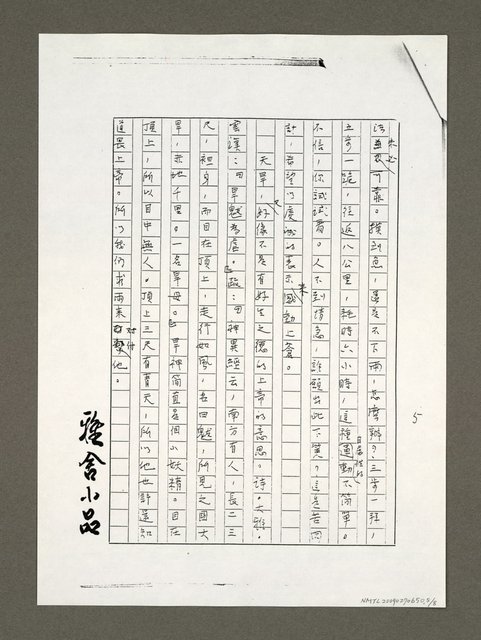 未必
法並不可靠。撲到魚，還是不下雨，怎麼辦？三步一拜，
五步一跪，往返八公里，耗時六小時，這種運動不簡單。
不信，你試試看。人不到情急，誰願出此下策？這是苦肉
計，希望以虔誠的表示感動上蒼。
天旱，好像不是有好生之德的上帝的意思。詩。大雅。
雲漢：「旱魃為虐。」疏：「神異經云：南方有人，長二三
尺，袒身，而目在頂上，走行如風，名曰魃，所見之國大
旱，赤地千里。一名旱母。」旱神簡直是個小妖精。目在
頂上，所以目中無人。頂上三尺有青天，所以他也許還知
道畏上帝。所以我們求雨來對付他。
雅舍小品
5
NMTL20090270650.5/8